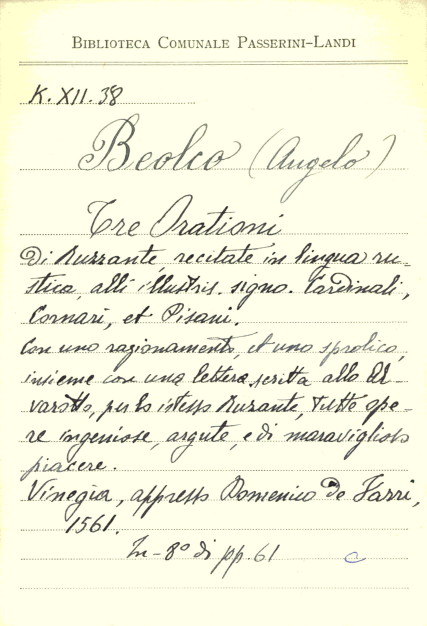 BIBLIOTECA COMUNALE PASSERINI-LANDI
K. XII. 38
Beolco (Angelo)
Tre Orationi
Di Ruzzante, recitate in lingua ru-
stica, alli illustris. signo. Cardinali,
Cornari, et Pisani.
Con uno ragionamento, et uno sprolico,
insieme con una lettera scritta allo Al-
varotto, per lo istesso Ruzante, Tutte ope-
re ingeniose, argute, e di maraviglioso
piacere.
Vinegia, appresso Domenico de Farri,
1561.
In-8º di pp. 61 c